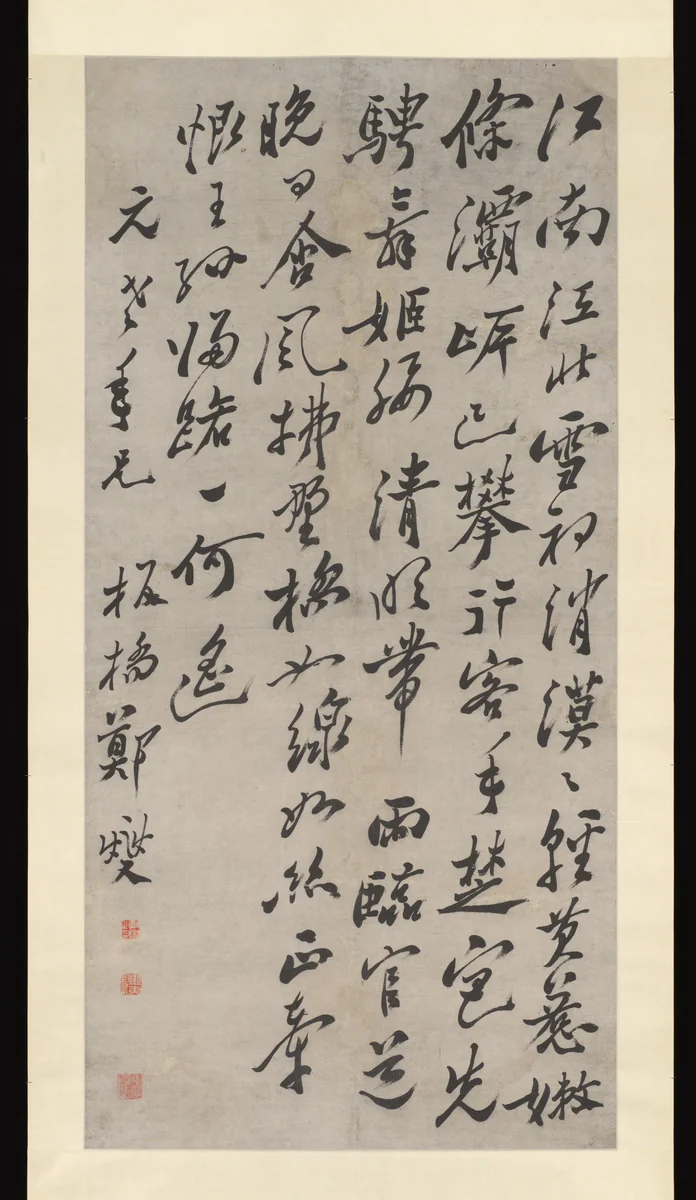 江南江北雪初消漠〻輕黃惹嫩
條灞岸已攀行客手楚宮先
騁舞姬腰清明帶雨臨官道
晚日含風拂野橋如線如絲正牽
恨王孫歸路一何遙
元老年兄 板橋鄭燮